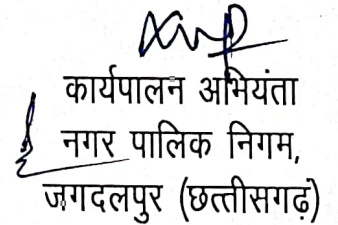 कार्यपालन अभियंता
नगर पालिक निगम,
जगदलपुर (छत्तीसगढ़)